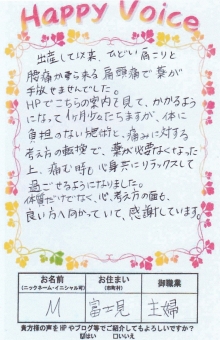 Happy Voice
出産して以来、ひどい肩こりと
腰痛から来る肩頭痛で薬が
手放せませんでした。
HPでこちらの案内を見て、かかるよう
になって1ヶ月少したちますが、体に
負担のない施術と、痛みに対する
考え方の転換で、薬が必要なくなった
上、痛む時も心身共にリラックスして
過ごせるようになりました。
体質だけでなく、心、考え方の面も
良い方へ向かっていて、感謝しています。
お名前 お住まい 御職業
(ニックネーム・イニシャル可) (市町村)
M 富士見 主婦
貴方様の声をHPやブログ等でご紹介してもよろしいですか?
はい □いいえ